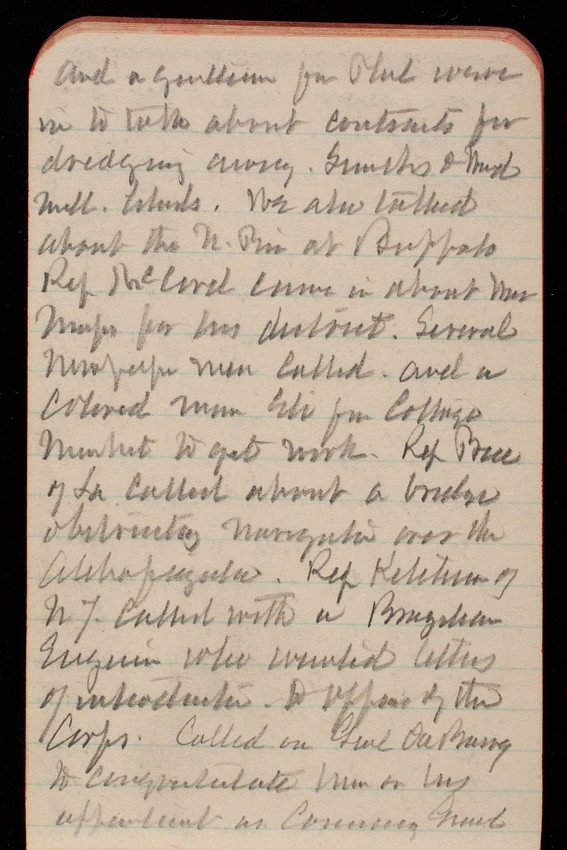 and a gentleman from Phil were
in to talk about contracts for
dredging away. Smiths & Wind
Mill. Islands. We also talked
about the N. Pier at Buffalo
Rep McCord came in about War
Maps for his district. Several
Newspaper men called. and a
Colored man Eli from College
Market to get work. Rep
of La called about a bridge
obstructing navigation over the
Atchafayala. Rep Ketcham of
N.Y. called with a Brazilian
Engineer who wanted letters
of introduction. to officers of the
Corps. Called on Genl Du Barry
to congratulate him on his
appointment as Commissary Genl